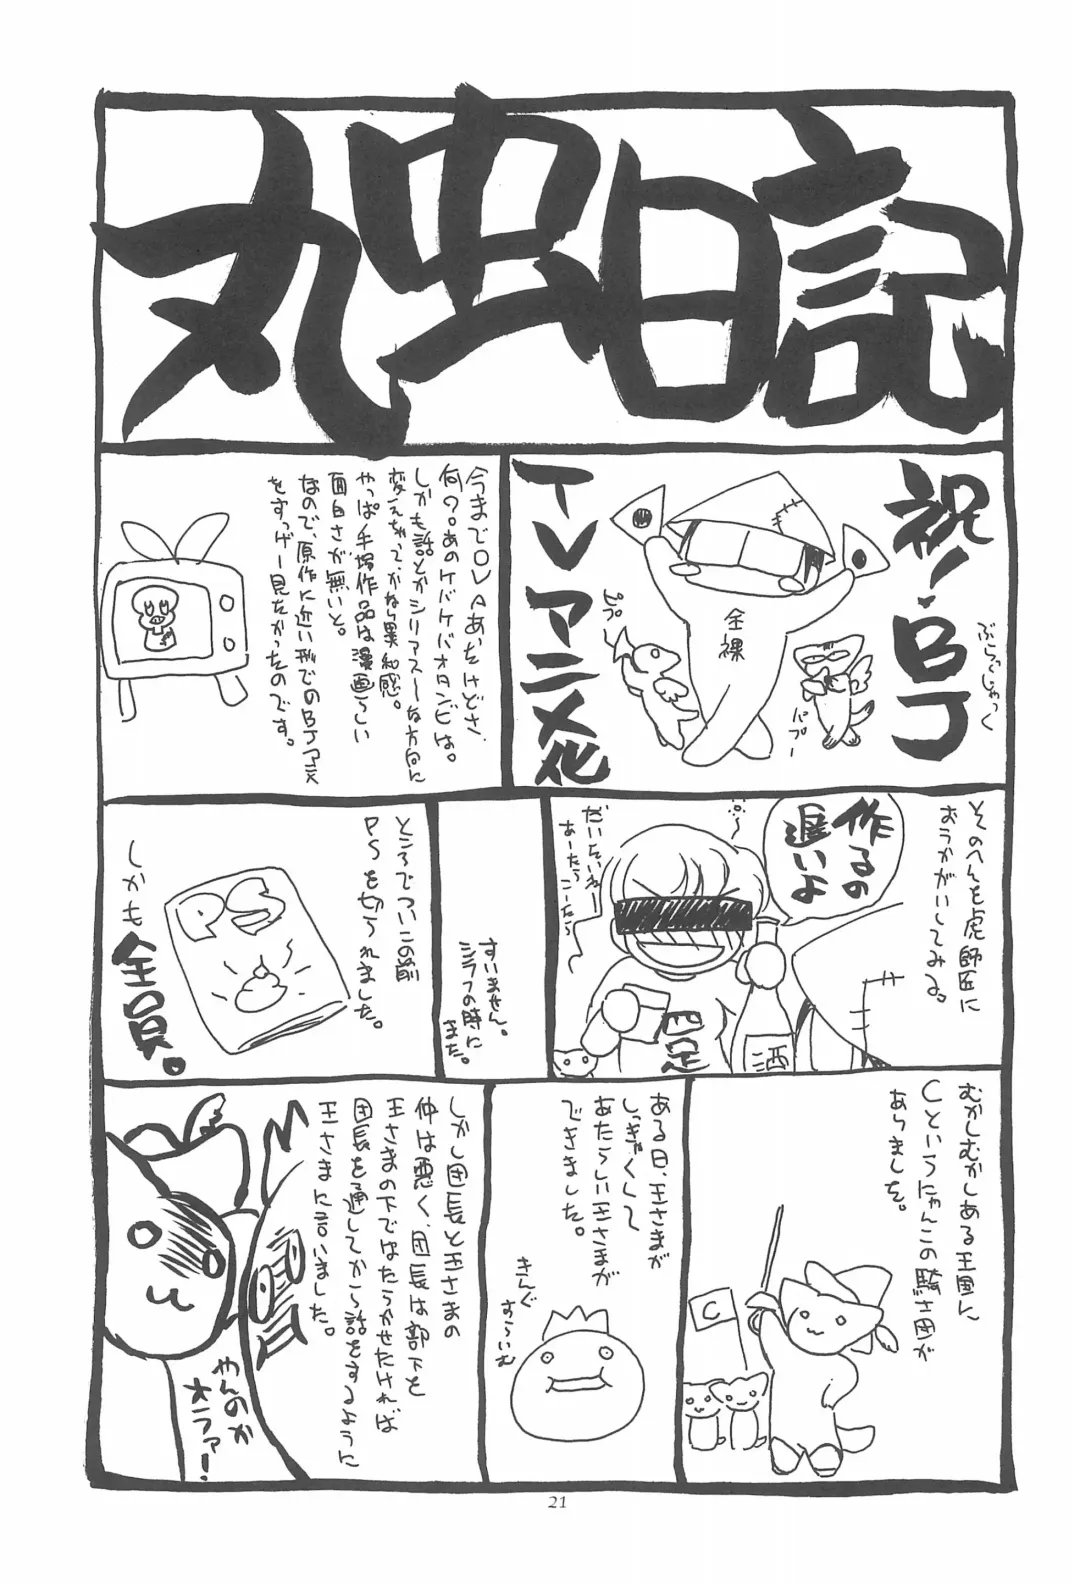 丸虫日記
祝!BJ
ぶらっくじゃっく
TVアニメ化
全裸
ピプー
パプー
今までOVAあったけどさ、
何?。あのケバケバオタンビは。
しかも話とかシリアスーな方向に
変えられてかなり異和感。
やっぱ手塚作品は漫画らしい
面白さが無いと。
なので、原作に近い形でのBJアニメ
をすっげー見たかったのです。
そのへんを虎師匠に
おうかがいしてみる。
作るの
遅いよ
だいたいねー
あーたらこーたら
酒
すいません。
シラフの時に
また。
ところでついこの前
PSを切られました。
PS
しかも
全員。
むかしむかしある王国に
Cというにゃんこの騎士団が
ありました。
C
ある日、王さまが
しっきゃくして
あたらしい王さまが
できました。
きんぐ
すらいむ
しかし団長と王さまの
仲は悪く、団長は部下を
王さまの下ではたらかせたければ
団長を通してから話をするように
王さまに言いました。
やんのか
オラァ!
21